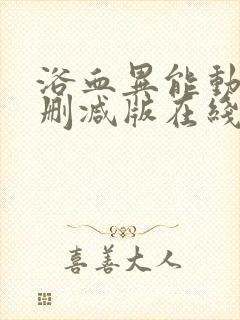 洛血異能動
刪減版在綫
喜善大人